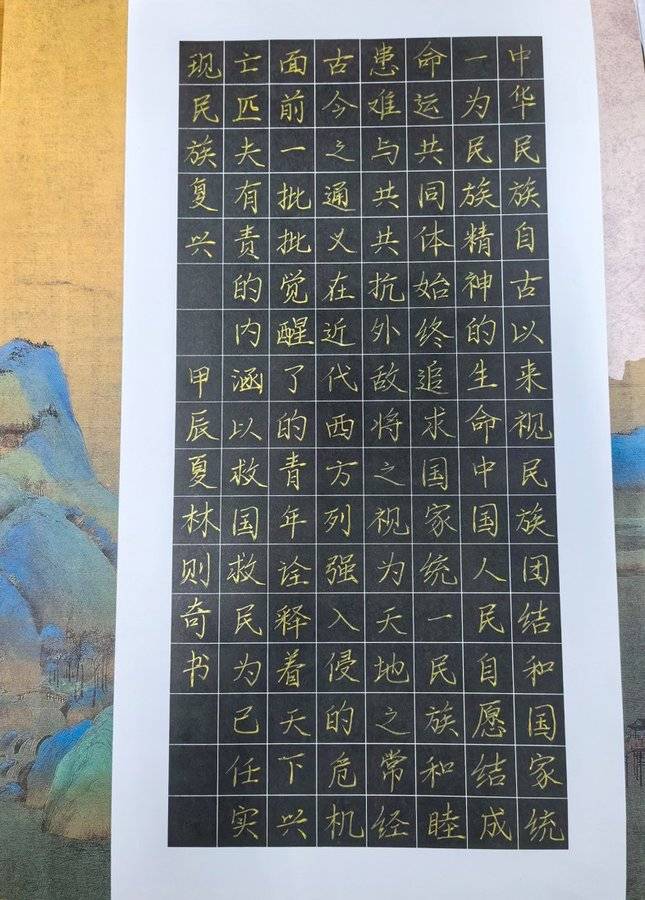 中华民族自古以来视民族团结和国家统
一为民族精神的生命中国人民自愿结成
命运共同体始终追求国家统一民族和睦
患难与共共抗外敌将之视为天地之常经
古今之通义在近代西方列强入侵的危机
面前一批批觉醒了的青年诠释着天下兴
亡匹夫有责的内涵以救国救民为己任实
现民族复兴 甲辰夏林则奇书